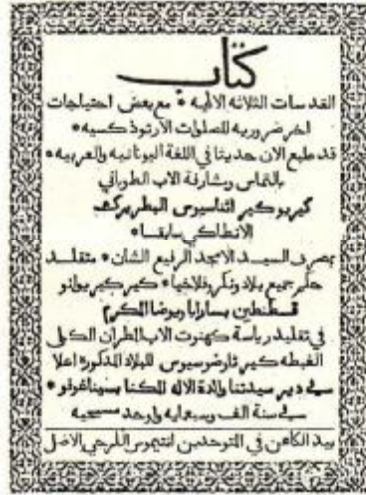 كتاب
القدسات الثلاثه الالهيه * مع بعض احتياجات
اخر ضروريه للصلوات الارتوذكسيه *
قد طبع الان حديثا في اللغة اليونانيه والعربيه *
بالتماس ومشارفة الاب الطوباني
كيريو كير اثناسيوس البطريرك
الانطاكي سابقا *
بمصرف السيد الامجد الرفيع الشان * متقلد
حكم جميع بلاد ونكروفلاخيا * كير كير يوانو
قسطنطين بسارابا ويوضا المكرم
في تقليد رياسة كهنوت الاب المطران الكلي
الغبطه كير ثاوضوسيوس للبلاد المذكورة اعلا
في دير سيدتنا والدة الاله المكنا بسيناغوفو *
في سنة الف وسبعمايه واحد مسيحيه
بيد الكاهن في المتوحدين انتيموس الكرجي الاصل